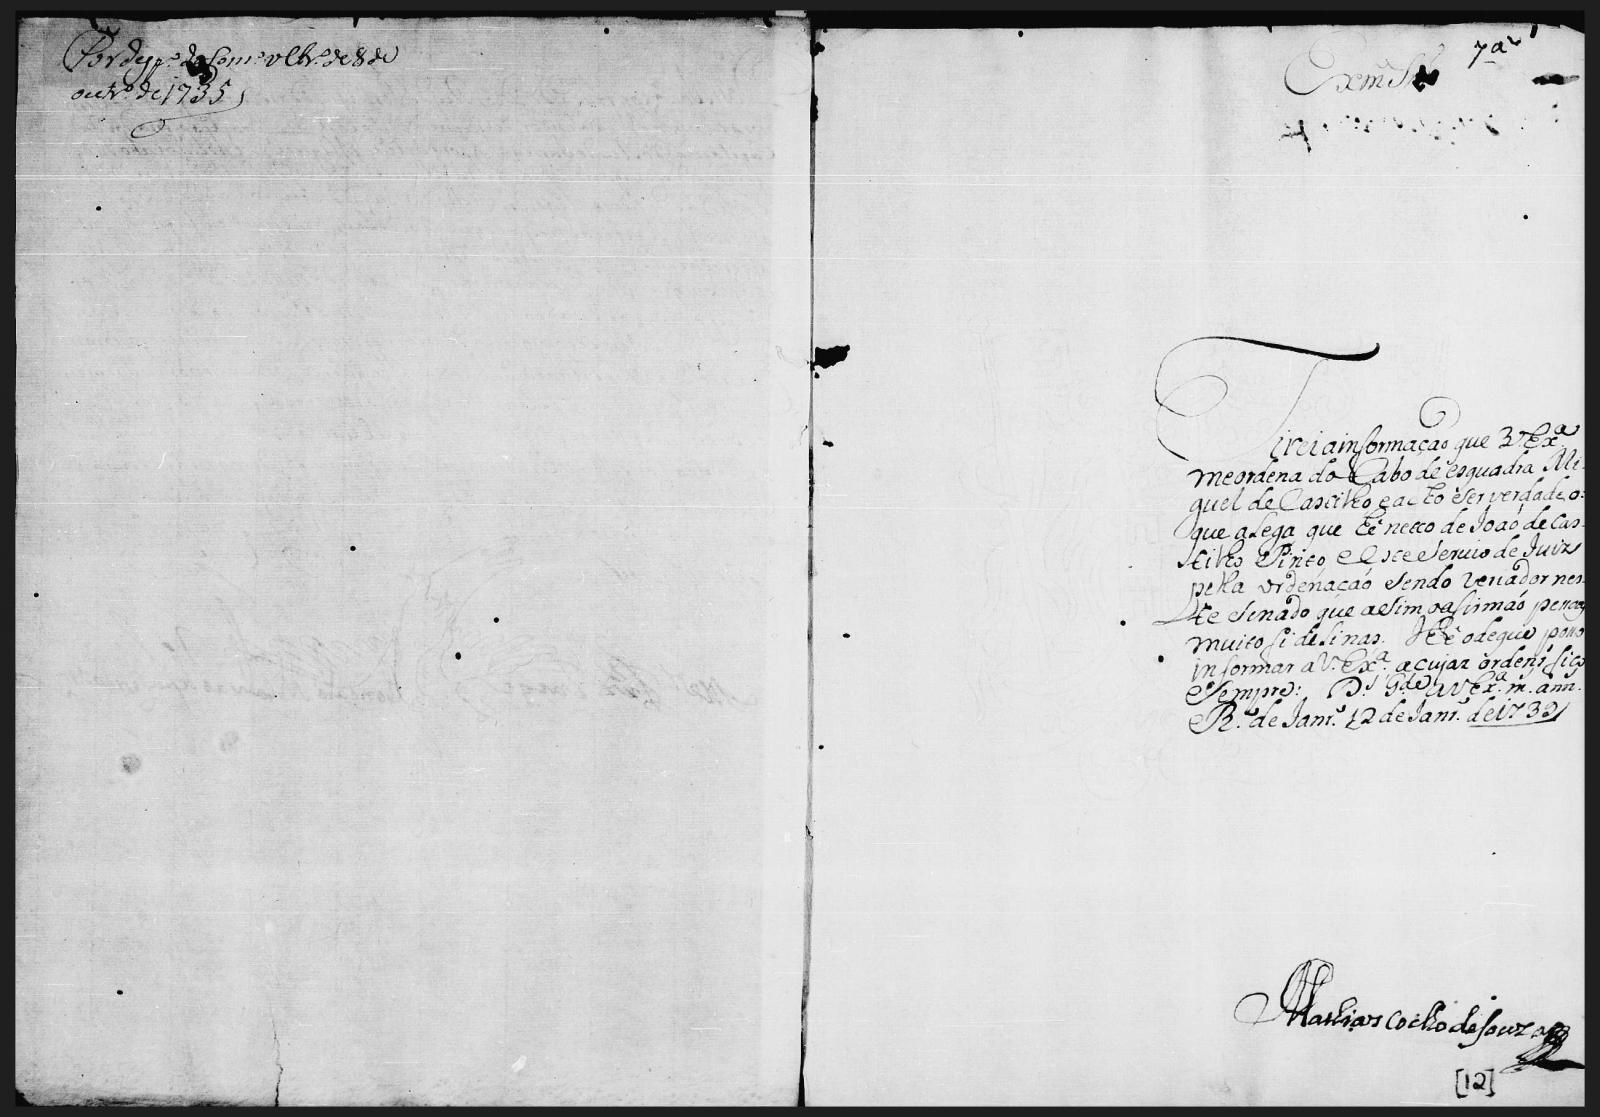 Por desp.º do Cons.º Ultr.º de 8 de
outr.º de 1735
7ª
Exmº Sr.
Tirei a informaçaõ que V. Exª
me ordena do Cabo de esquadra Mi-
guel de Castilho e acho ser verdade o
que alega que hé neto de Joaõ de Cas-
tilho Pinto e este servio de Juiz
pella ordenaçaõ sendo veriador nes-
te senado que asim o afirmaõ pessoas
muito fidelinas. Hé o de que posso
informar a V. Exª. a cujas ordens fico
sempre. D.s G.de a V Exª. m. ann.
R.º de Janr.º 12 de Janr.º de 1733
Mathias Coelho de Souza
[12]